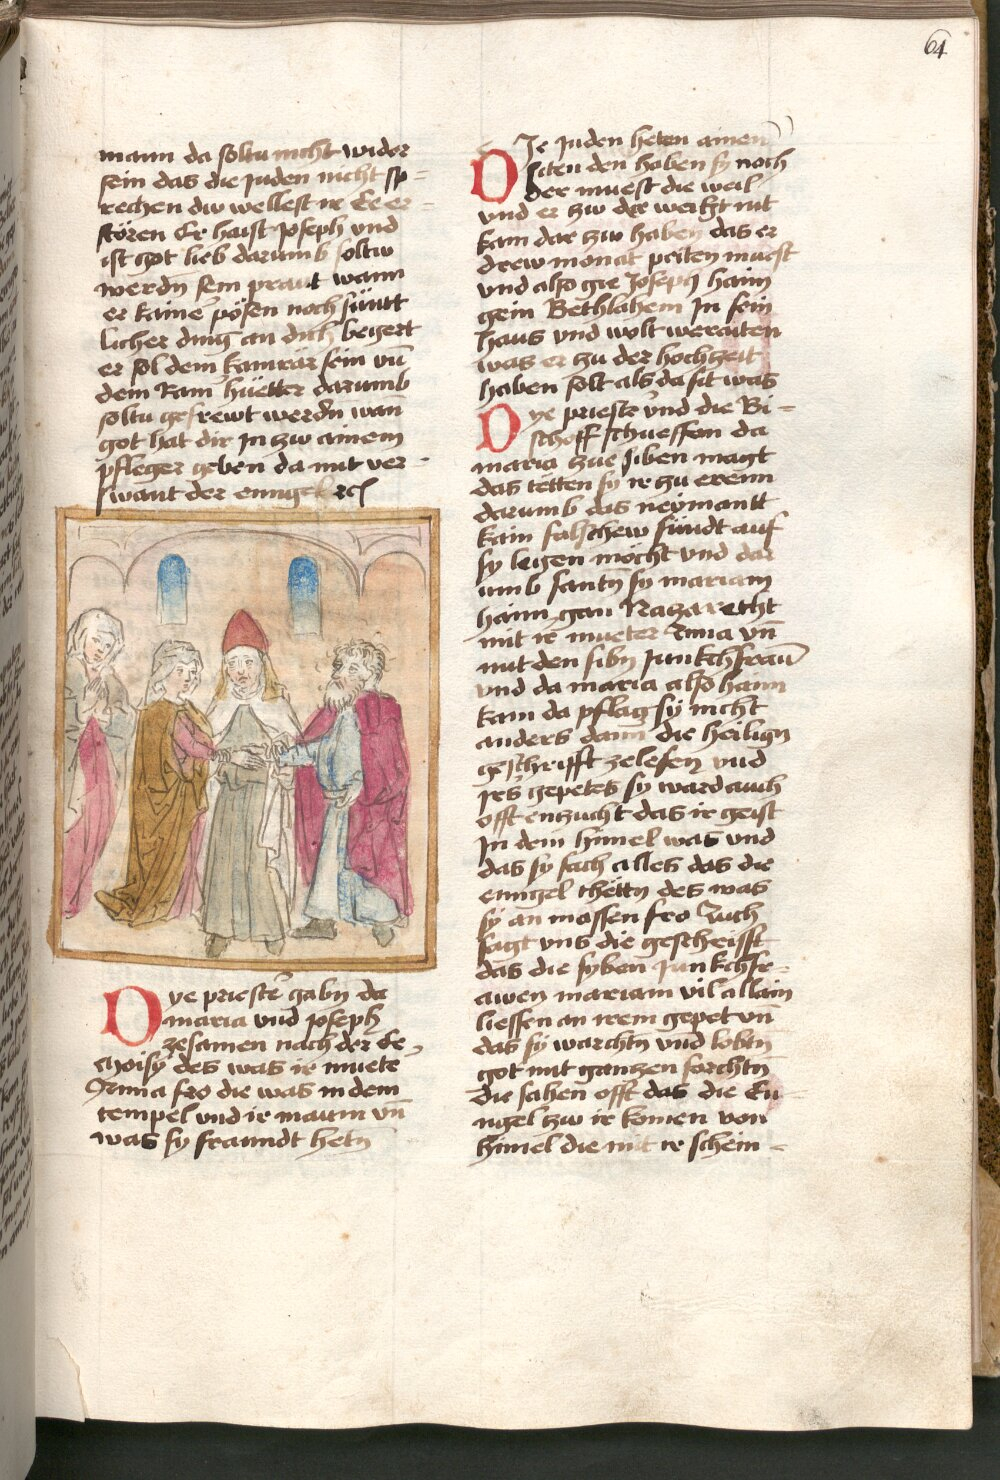 64
mann da soltu nicht wider
sein das die juden nicht sp=
rechen du wellest ir Ee er=
stören Er haist Joseph und
ist got lieb darumb soltu
werdn sein praut wann
er kaine pösen noch süntt
licher ding an dich begert
er sol dein kamrär sein un
dem kain hüetter darumb
soltu gefrewt werdn wan
got hat dir in zw ainem
pfleger geben da mit ver=
swant der enngel rc
Dye priester gabn da
maria und joseph
zesamen nach der Ee
Moisy des was ir muete
Anna fro die was in dem
tempel und ir maum un
was sy fraundt hetn
DJe juden heten ainen
siten den haben sy noch
der muest die weil
und er zw der weicht nit
kam dar zw haben das er
drew monat peiten muest
und also gie Joseph haim
gein Bethlahem In sein
haus und wolt weraiten
was er zu der hochzeit
haben solt als da sit was
Dye priester und die Bi=
schoff schueffen da
maria zue siben magt
das tetten sy ir zu erenn
darumb das neymantt
kain falschew sundt auf
sy legen möcht und dar
umb santn sy mariam
haim gau Nazaretht
mit ir mueter Anna un
mit den sibn Junkchfrau
und da maria also haim
kam da pflag sy nicht
anders dann die heilign
geschrifft zelesen und
irs gepetes sy ward auch
offt enzucht das ir geist
In dem himel was und
das sy sach alles das die
enngel thettn des was
sy an massen fro Auch
sagt uns die gescheifft
das die syben junkchfr=
awen mariam vil allain
lieffen an irem gepet un
das sy warchtn und lobtn
got mit ganzen forchtn
Die sahen offt das die En=
ngel zw ir komen von
himel die mit ir schein=